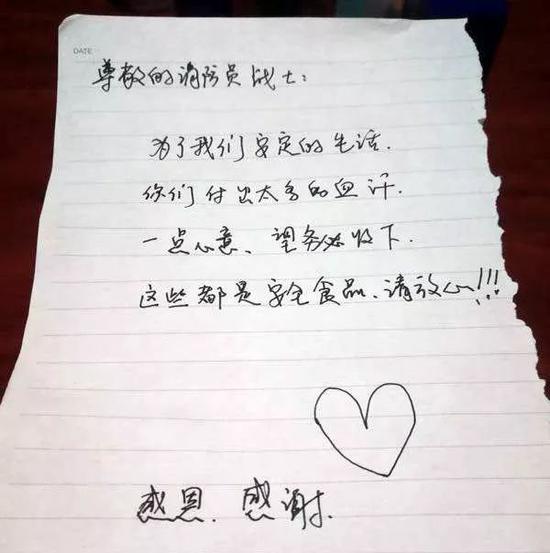 DATE
尊敬的消防员战士:
为了我们安定的生活.
你们付出太多的血汗.
一点心意、望务必收下.
这些都是安全食品、请放心!!!
感恩. 感谢.